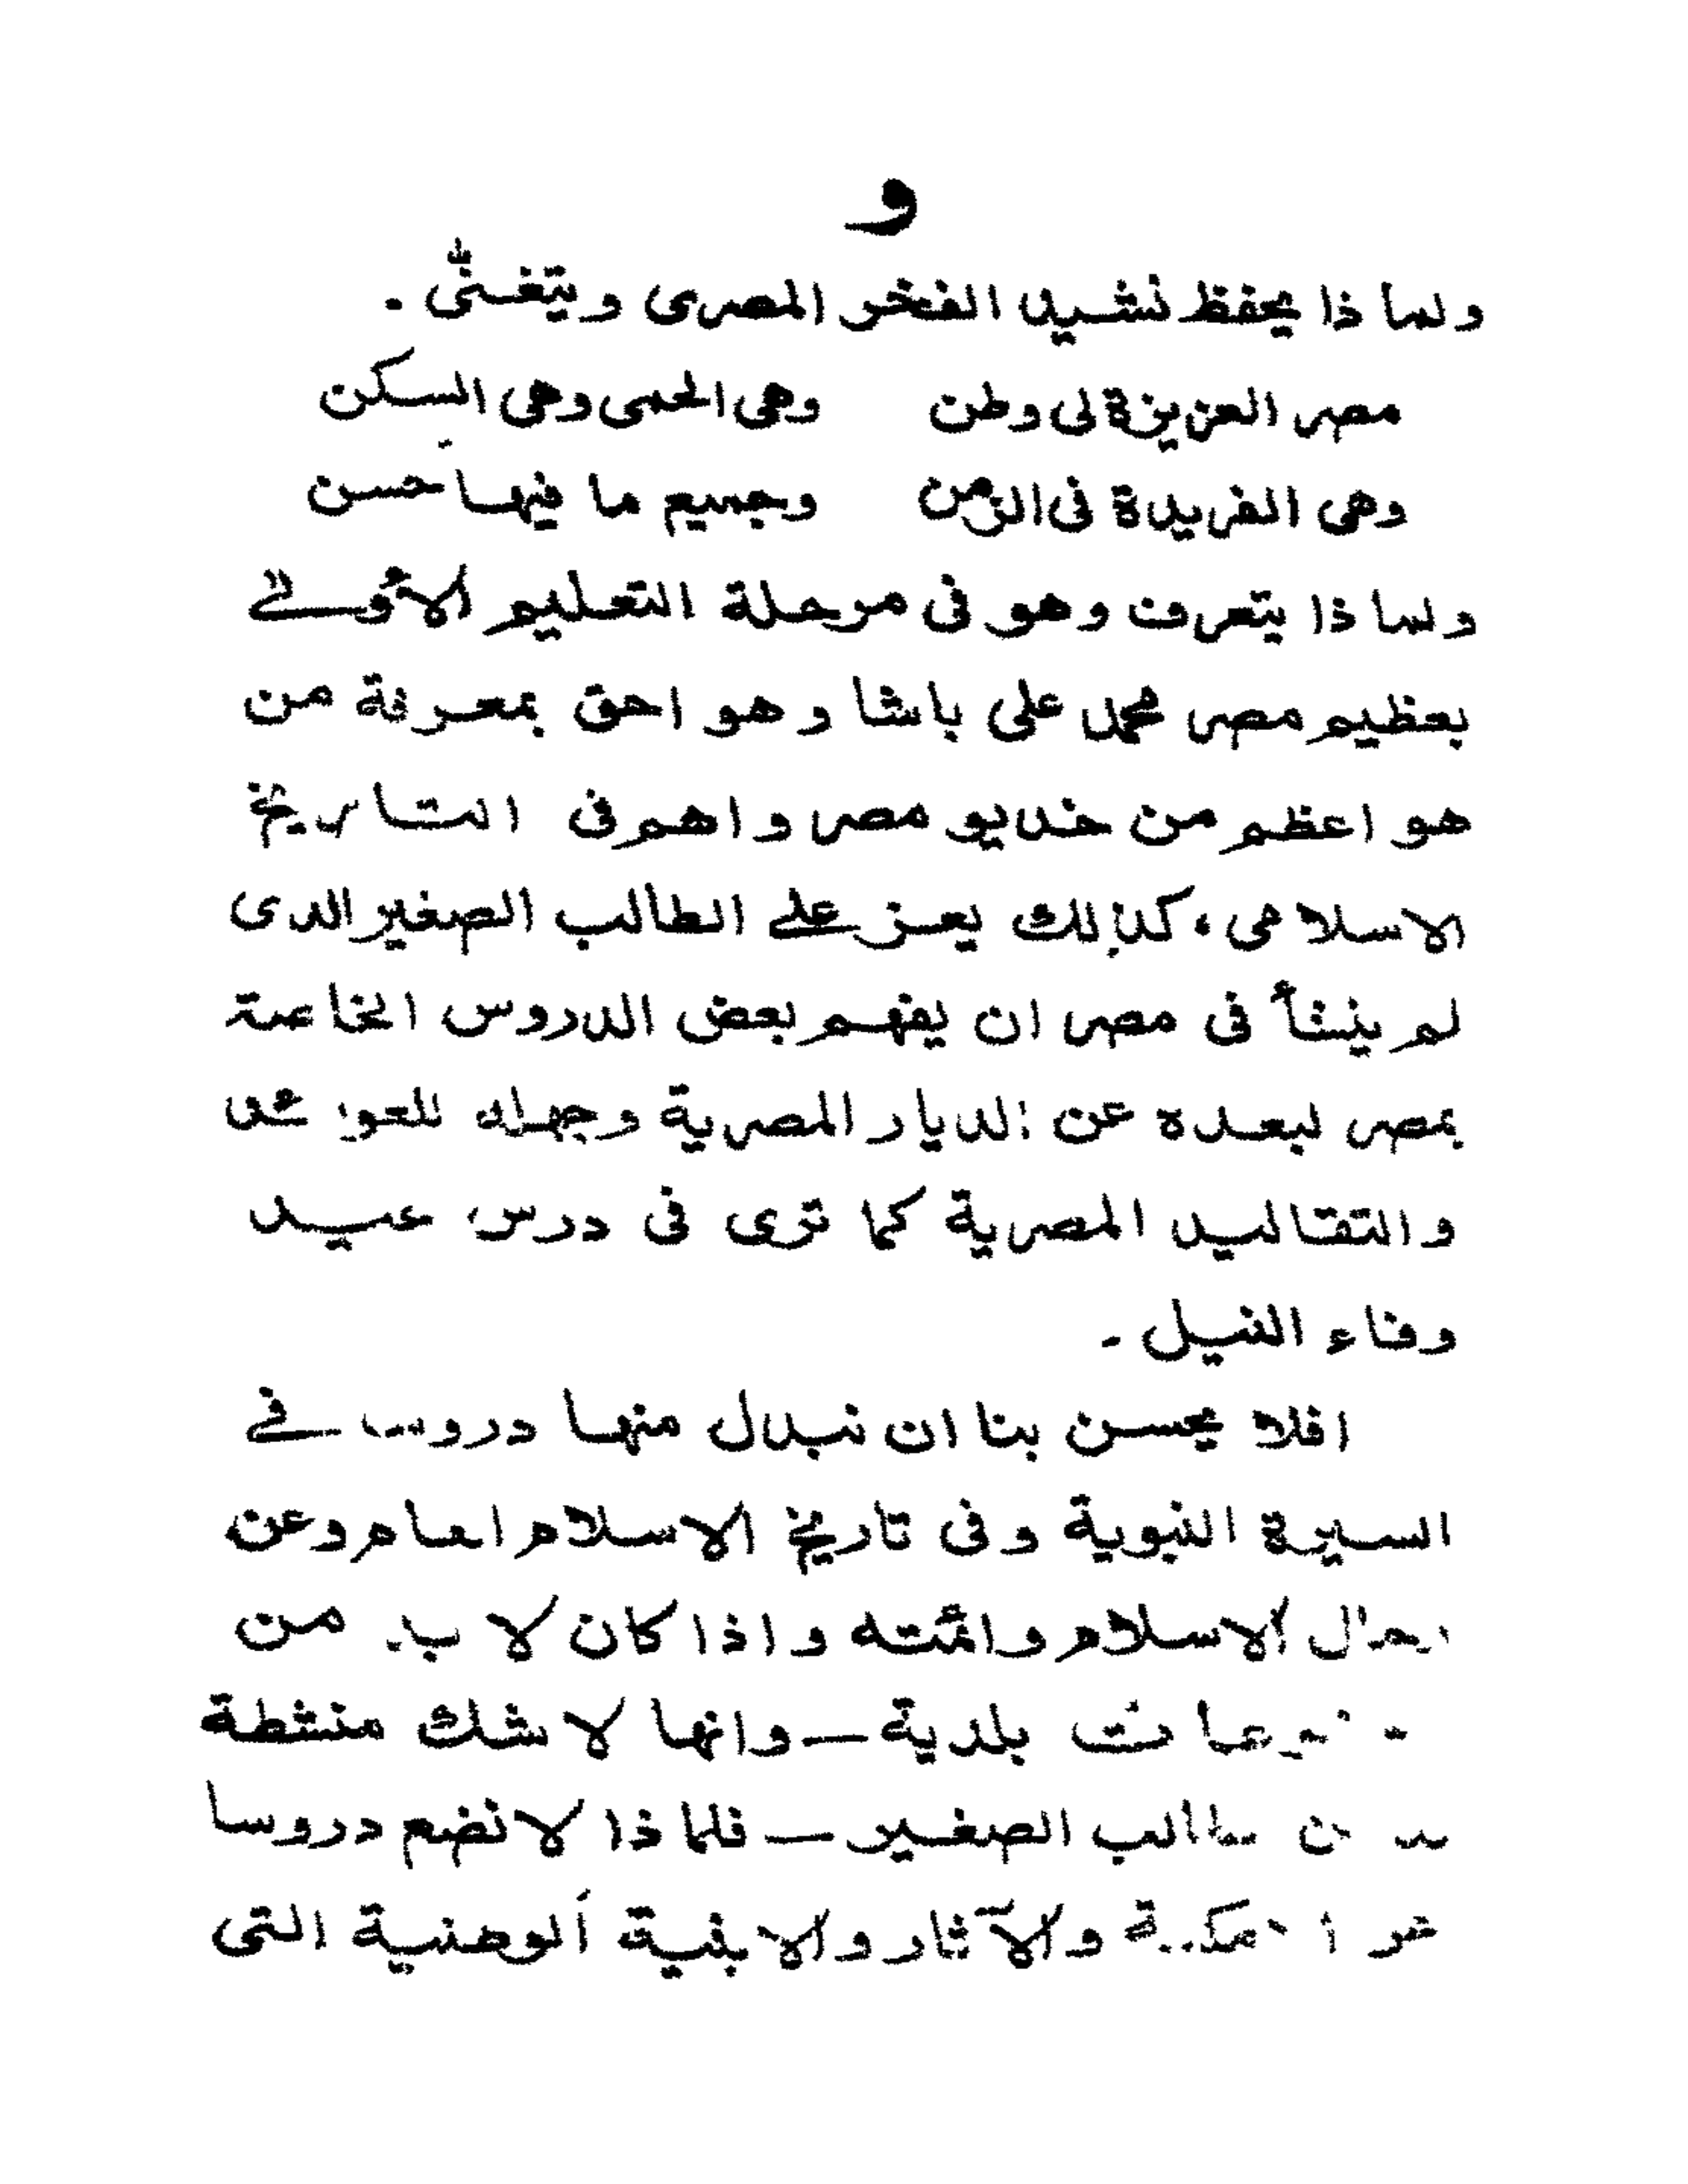 و
ولماذا يحفظ نشيد الفخر المصرى ويتغنّى .
مصر العزيزة لى وطن وهى الحمى وهى السكن
وهى الفريدة فى الزمن وجميع ما فيها حسن
ولماذا يتعرف وهو فى مرحلة التعليم الأولى
بعظيم مصر محمد على باشا وهو احق بمعرفة من
هو اعظم من خديو مصر واهم فى التاريخ
الاسلامى، كذلك يعز على الطالب الصغير الذى
لم ينشأ فى مصر ان يفهم بعض الدروس الخاصة
بمصر لبعده عن الديار المصرية وجهله للعوائد
والتقاليد المصرية كما ترى فى درس عيد
وفاء النيل -
افلا يحسن بنا ان نبدل منها دروسا فى
السيرة النبوية وفى تاريخ الاسلام العام وعن
رجال الاسلام وائمته واذا كان لا بد من
بلدية — وانها لا شك منشطة
الطالب الصغير — فلماذا لا نضع دروسا
والآثار والابنية الوطنية التى